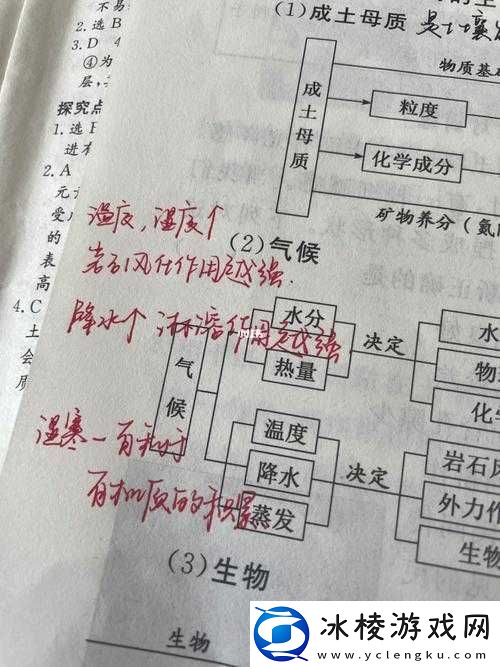 不易
2. 选 B
3. D 4
④为
层,
探究点
1. 选
进
2. A
元
受
的
表
高
4. C
土
会
质
(1)成土母质 是土壤
物质基
成土母质
粒度
化学成分
矿物养分(氮
温度,湿度个
岩石风化作用越强.
(2)气候
降水个 淋溶作用越强
气候
水分
热量
决定
水
物
化
湿寒一有利于
有机质的积累
温度
降水
蒸发
决定
岩石风
外力作
生物
(3)生物
生物
冰棱游戏网
www.yclengku.com